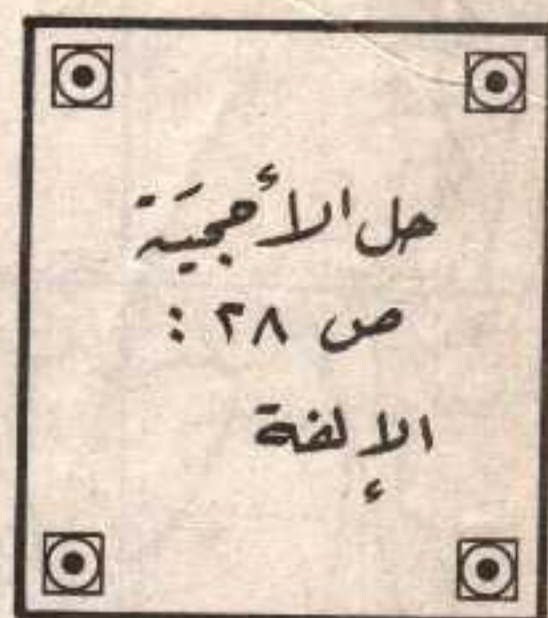 حل الأحجيَة
ص ٢٨ :
الإلفة